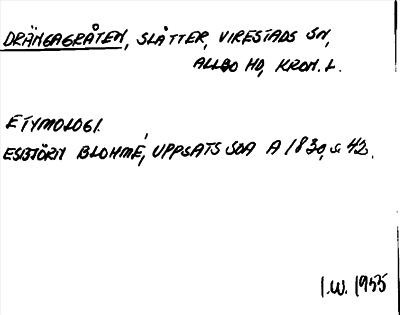 DRÄNGAGRÅTEN, SLÅTTER, VIRESTADS SN,
ALLBO HD, KRON. L.
ETYMOLOGI.
ESBJÖRN BLOHMÉ, UPPSATS SOA A 1830, s. 42.
I.W. 1955